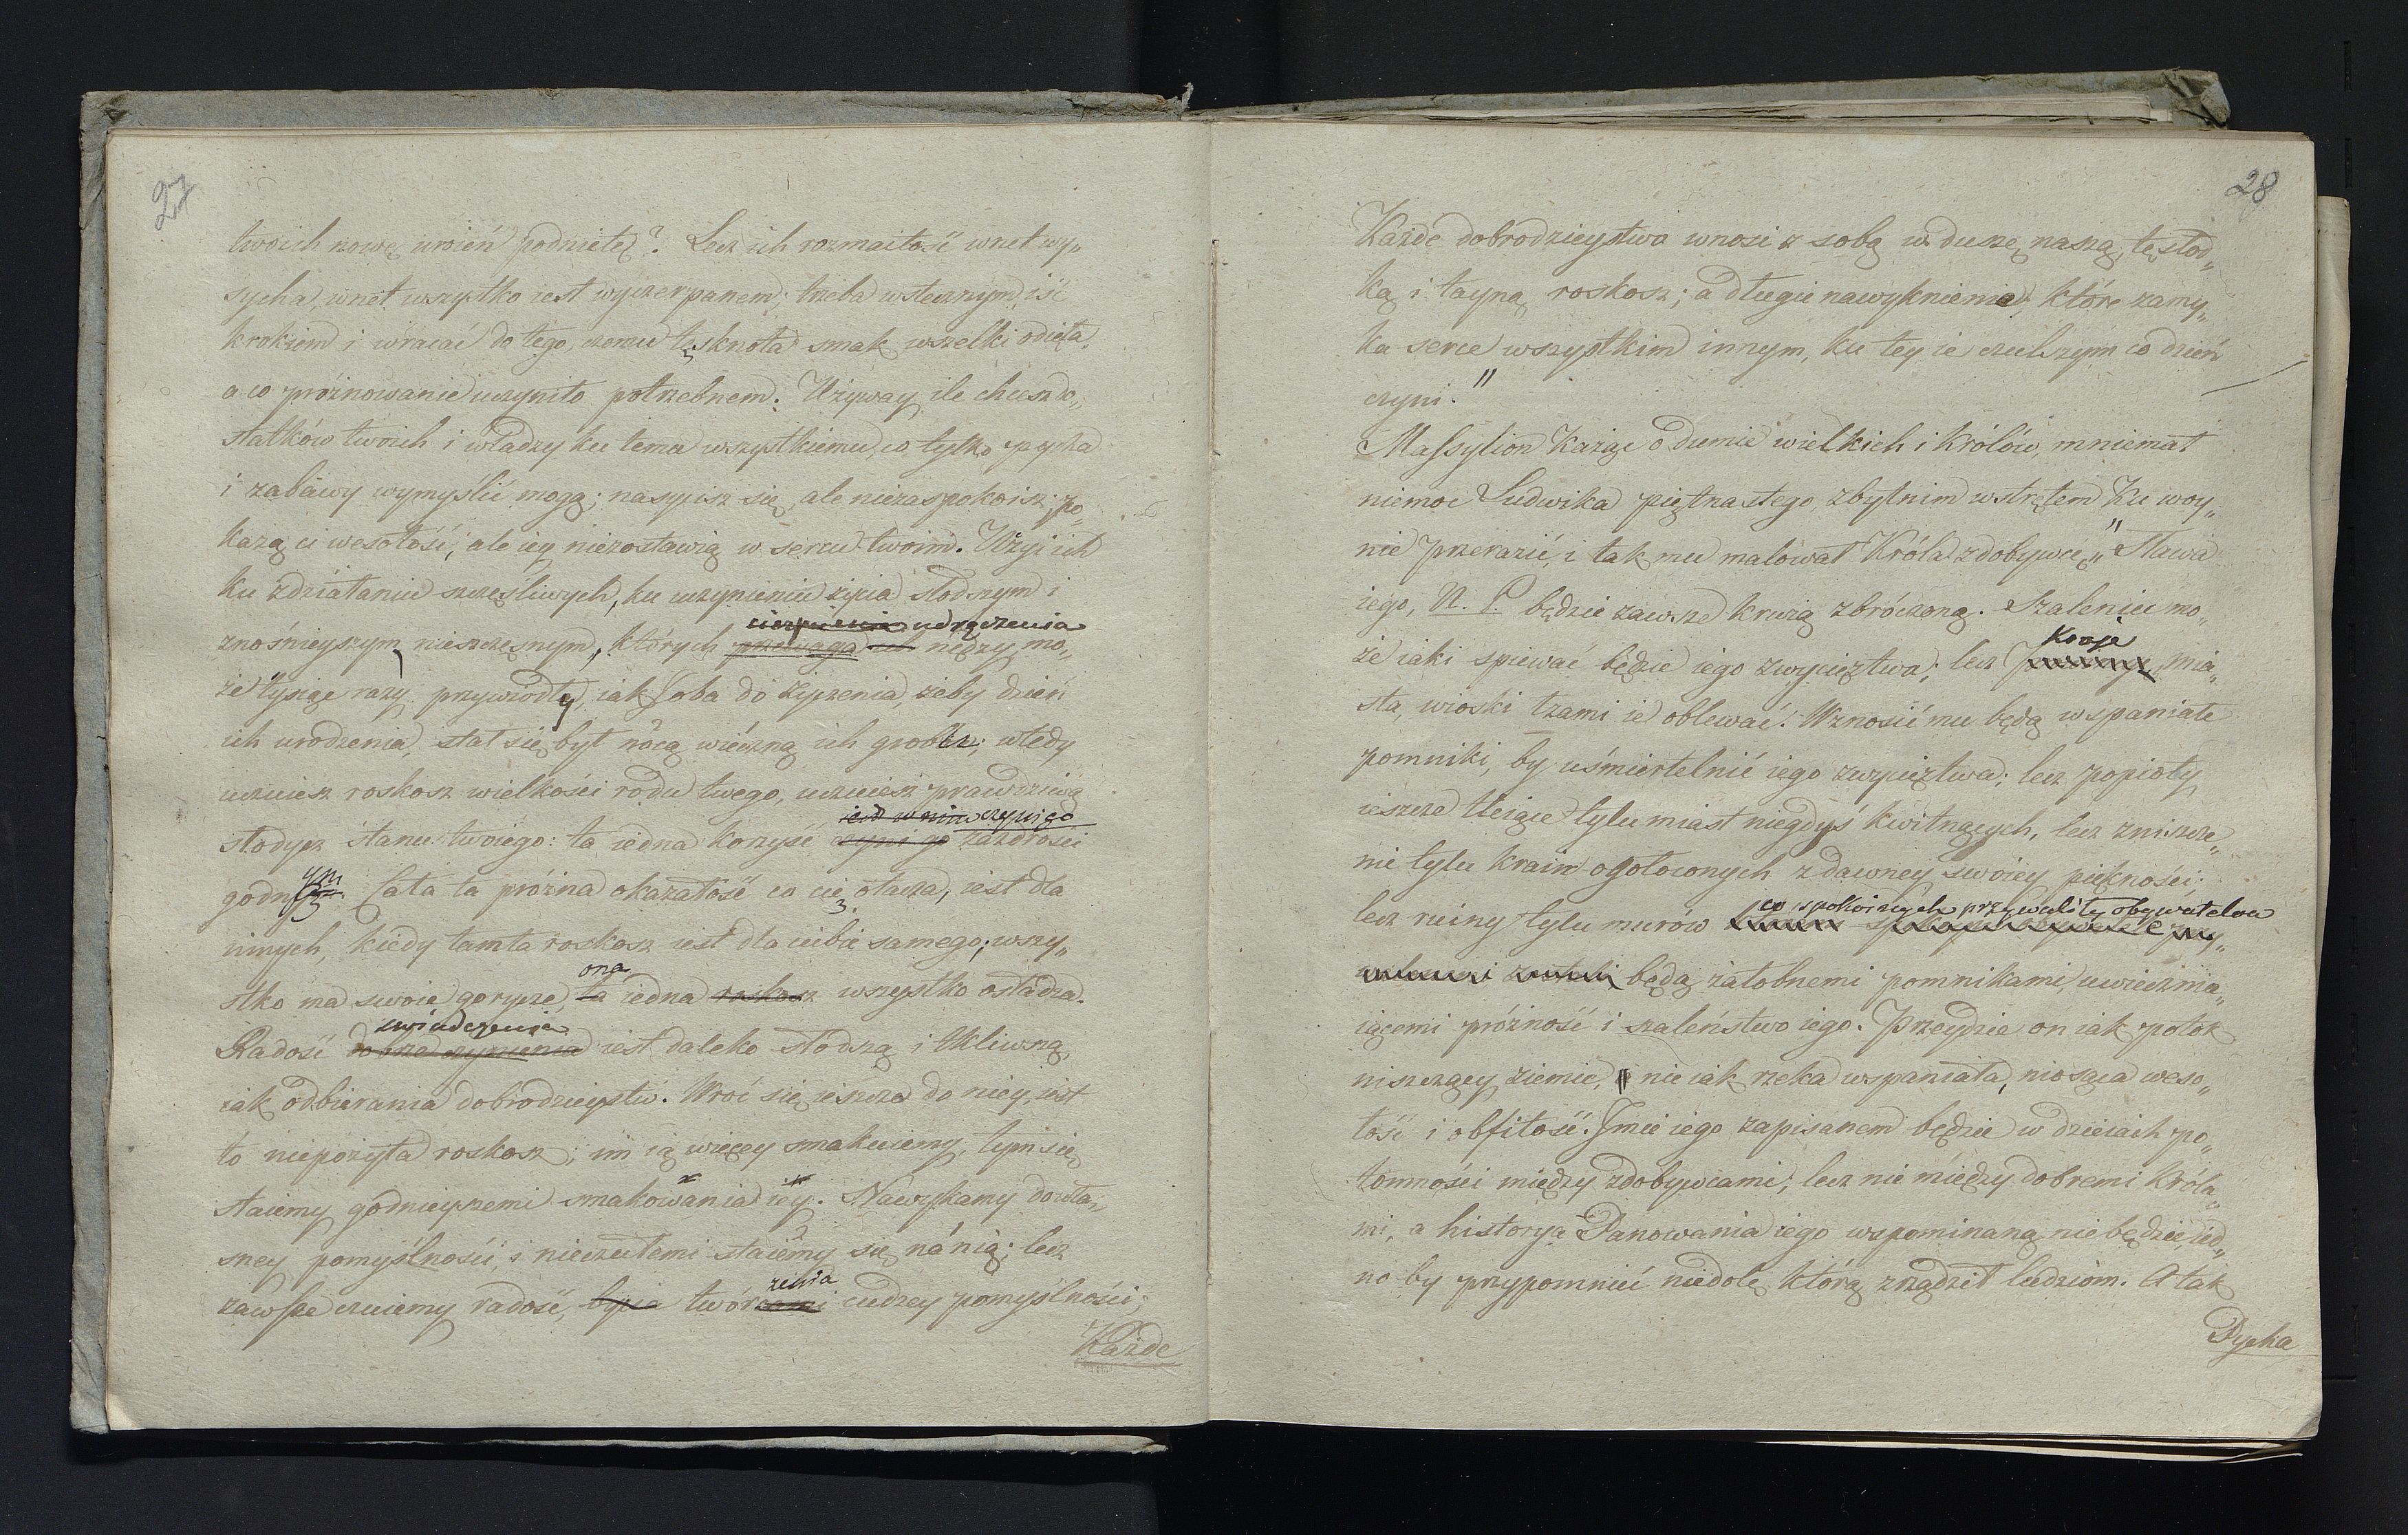 27
twoich nowę uroień podnietę? Lecz ich rozmaitość wnet wy„
sycha, wnet wszystko iest wyczerpanem; trzeba wstecznym iść
krokiem i wracać do tego, czemu tęsknota smak wszelki odięła,
a co próżnowanie uczyniło potrzebnem. Używay ile chcesz do„
statków twoich i władzy ku temu wszystkiemu, co tylko pycha
i zabawy wymyślić mogą; nasycisz się, ale niezaspokoisz; po„
każą ci wesołość, ale iey niezostawią w sercu twoim. Użyi ich
ku zdziałaniu szczęśliwych, ku uczynieniu życia słodszym i
cierpienia udręczenia
znośnieyszym nieszczęsnym, których przewaga ich nędzy mo„
że tysiąc razy przywiodły, iak Joba do życzenia, żeby dzień
ich urodzenia, stał się był nocą wieczną ich grobu; wtedy
uczuiesz roskosz wielkości rodu twego, uczuiesz prawdziwą
czyni go
słodycz stanu twoiego: ta iedna korzyść czyni go zazdrości
ym
godny. Cała ta próżna okazałość co cię otacza, iest dla
innych, kiedy tamta roskosz iest dla ciebie samego; wszy„
ona
stko ma swoie gorycze, ta iedna roskosz wszystko osładza.
świadczenia
Radość dobrze czynienia iest daleko słodszą i tkliwszą,
iak odbierania dobrodzieystw. Wróć się ieszcze do niey, iest
to niepożyta roskosz; im ią więcey smakuiemy, tym się
staiemy godnieyszemi smakowania iey. Nawykamy do wła„
sney pomyślności, i nieczułemi staiemy się na nią; lecz
rzenia
zawsze czuiemy radość, bycia twórcami cudzey pomyślności;
Każde
28
Każde dobrodzieystwo wnosi z sobą w duszę naszą, tę słod„
ką i tayną roskosz; a długie nawyknienie, które zamy„
ka serce wszystkim innym, ku tey ie czulszym co dzień
czyni."
Massylion każąc o dumie wielkich i królów, mniemał
niemoc Ludwika piętnastego, zbytnim wstrętem ku woy„
nie przerazić, i tak mu malował Króla zdobywcę, „Sława
iego, N. P. będzie zawsze krwią zbroczoną. Szaleniec mo„
Kraje
że iaki spiewać będzie iego zwycięztwa; lecz mia„
sta, wioski łzami ie oblewać. Wznosić mu będą wspaniałe
pomniki, by uśmiertelnić iego zwycięztwa; lecz popioły
ieszcze tleiące tylu miast niegdyś kwitnących, lecz zniszcze„
nie tylu krain ogołoconych z dawney swoiey piękności;
co spokoinych przywaliły obywatelow
lecz ruiny tylu murów
będą żałobnemi pomnikami, uwieczma„
iącemi próżność i szaleństwo iego. Przeydzie on iak potok
niszczący ziemię, nie iak rzeka wspaniała, niosąca weso„
łość i obfitość. Imie iego zapisanem będzie w dzieiach po„
tomności między zdobywcami; lecz nie między dobremi Króla„
mi, a historya Panowania iego wspominaną nie będzie, ied„
no by przypomnieć niedolę, którą zrządził ludziom. A tak
Pycha